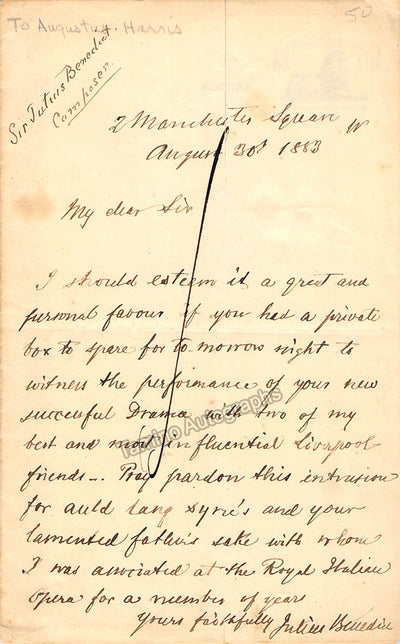 To Augustus Harris
50
Sir Julius Benedict
Composer.
2 Manchester Square W
August 30t 1883
My dear Sir
I should esteem it a great and
personal favour if you had a private
box to spare for to morrow night to
witness the performance of your new
successful Drama with two of my
best and most influential Liverpool
friends -. Pray pardon this intrusion
for auld lang syne's and your
lamented father's sake with whom
I was associated at the Royal Italian
Opera for a number of years
Yours faithfully Julius Benedict
Tamino Autographs